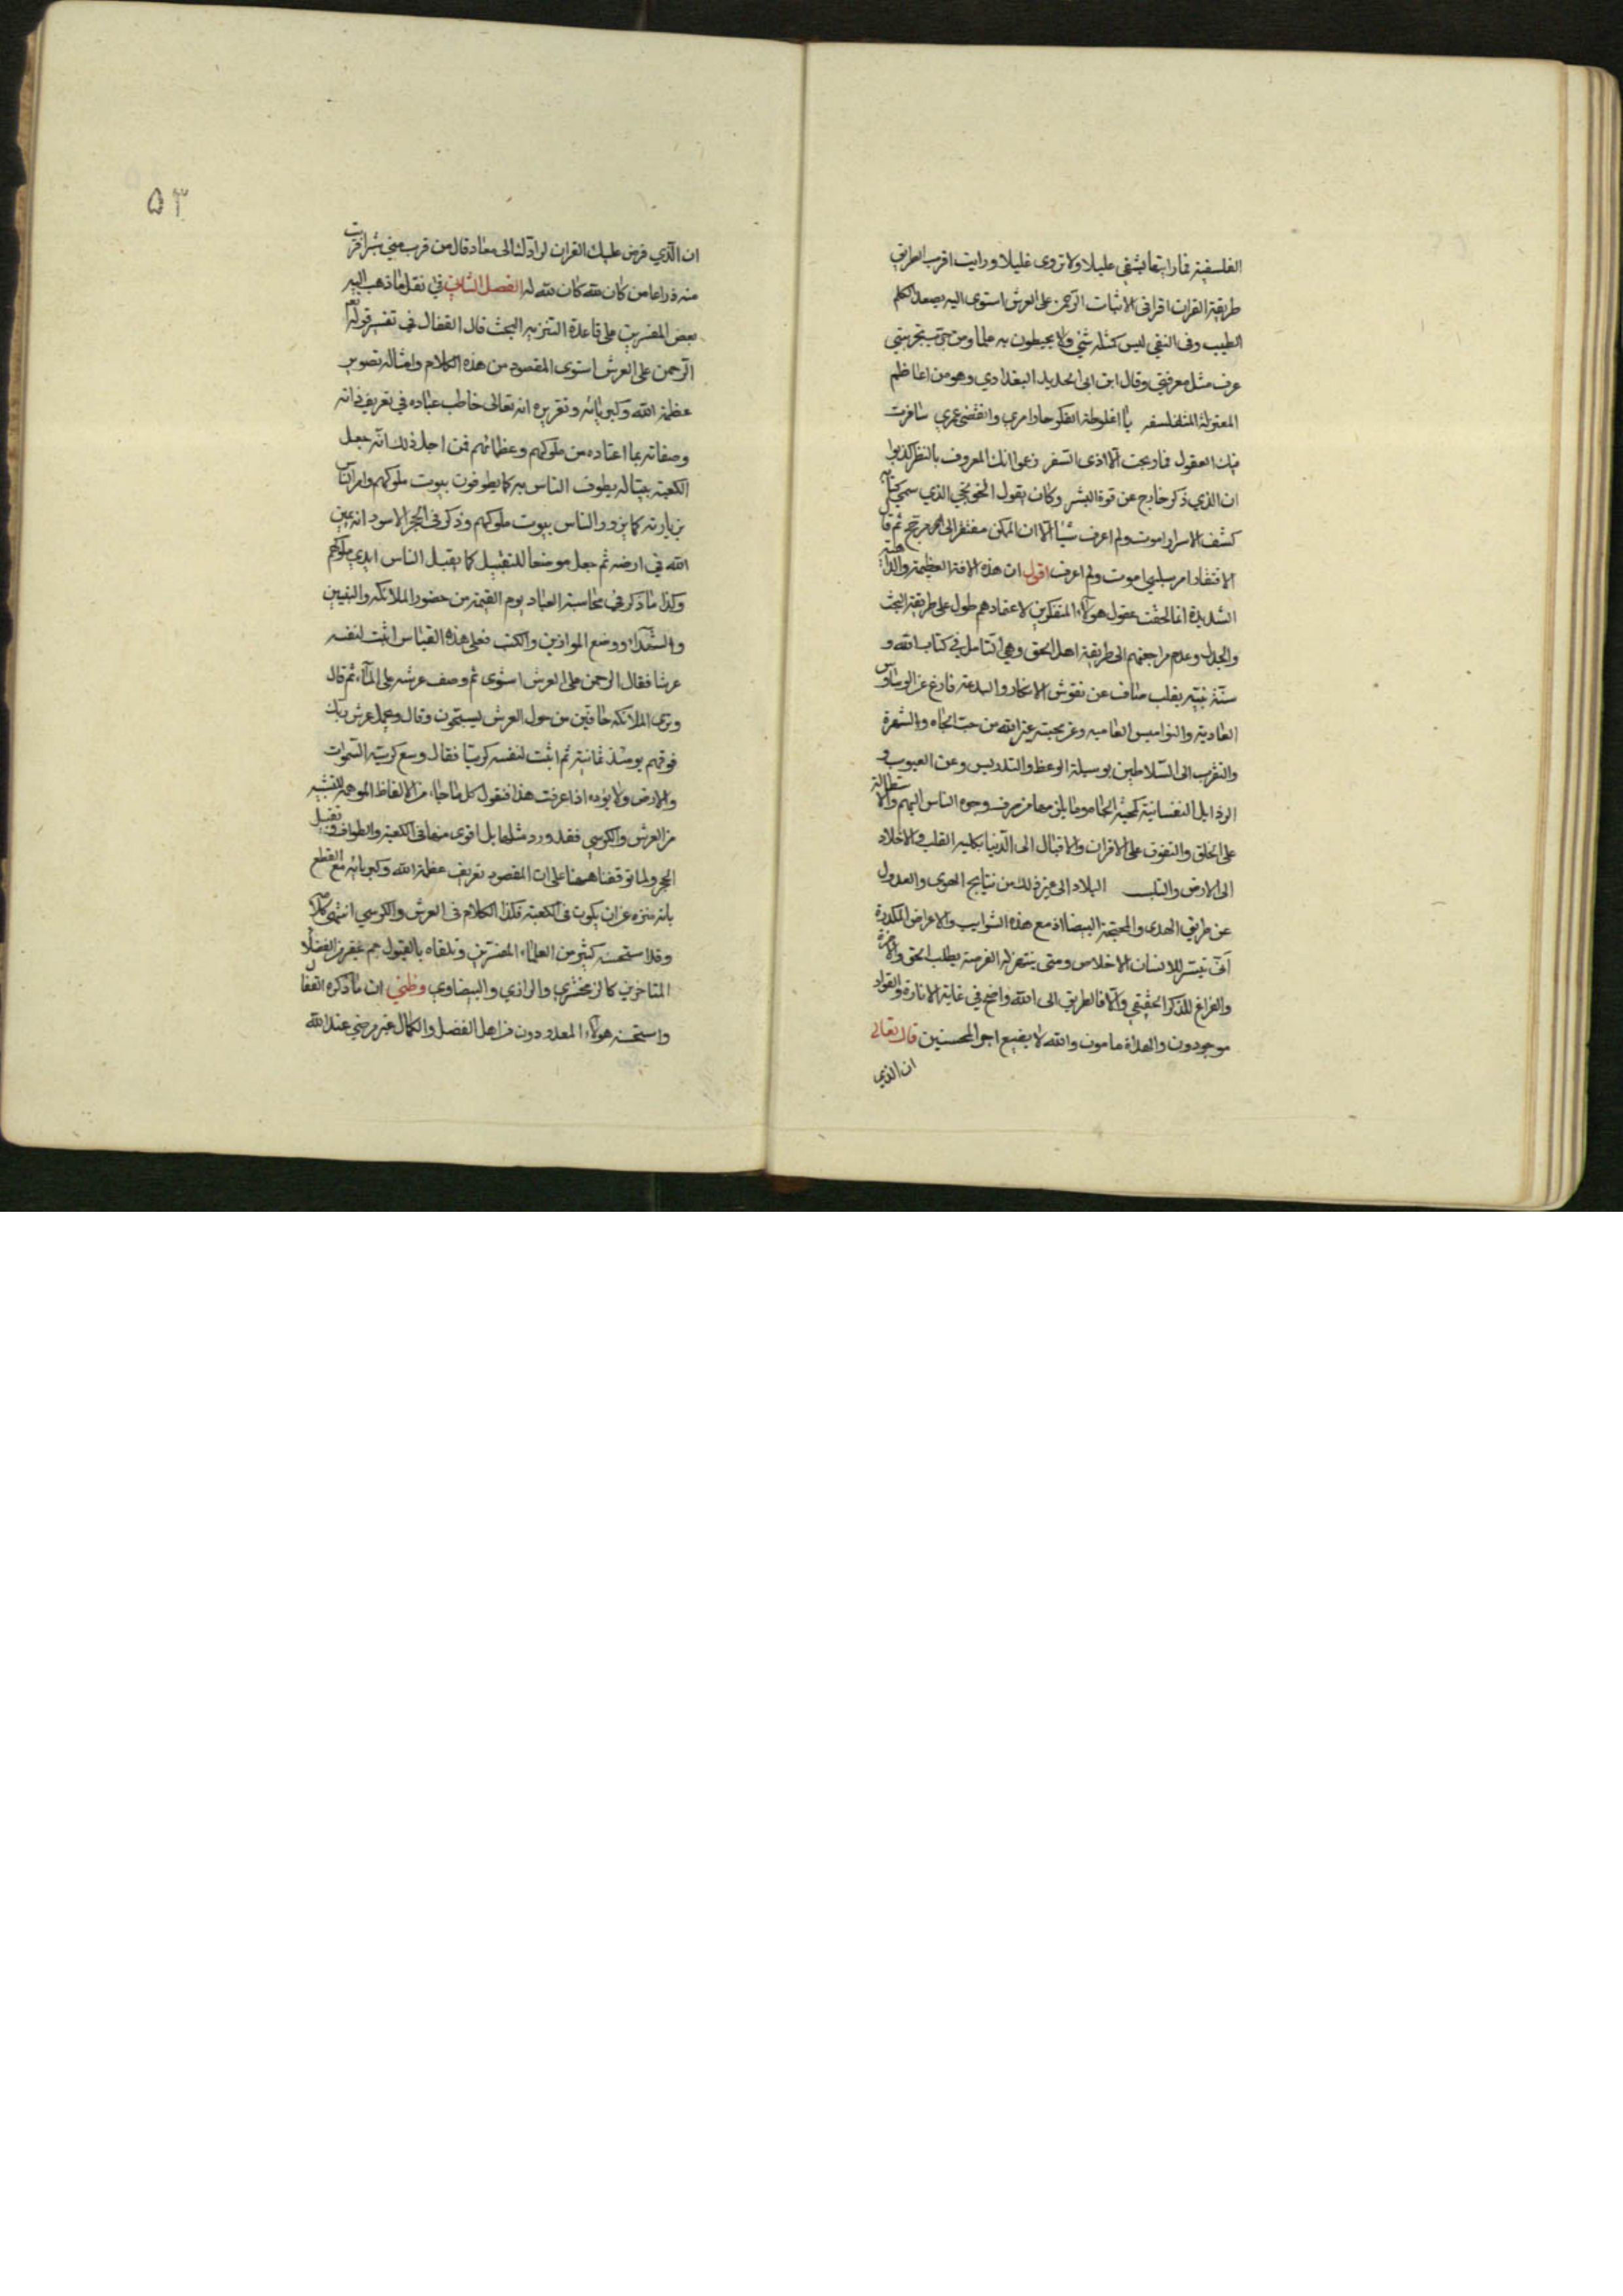 الفلسفية فما رايتها تشفي عليلا ولا تروي غليلا ورايت اقرب الطريق
طريقة القران اقرا في الاثبات الرحمن على العرش استوى اليه يصعد الكلم
الطيب وفى النفي ليس كمثله شئ ولا يحيطون به علما ومن جرب تجربتي
عرف مثل معرفتي وقال ابن ابى الحديد البغدادي وهو من اعاظم
المعتزلة المتفلسفه يا اغلوطة الفكر حار امري وانقضى عمري سافرت
فيك العقول فما ربحت الا اذى السفر زعموا انك المعروف بالنظر كذبوا
ان الذي ذكر خارج عن قوة البشر وكان يقول الخونجي الذي سمى كتابه
كشف الاسرار اموت ولم اعرف شيئا الا ان الممكن مفتقر الى مرجح ثم قال
الافتقار امر سلبي اموت ولم اعرف اقول ان هذه الافة العظيمة والداهية
الشديدة انما لحقت عقول هولاء المتفكرين لاعتمادهم طول على طريقة البحث
والجدل وعدم مراجعتهم الى طريقة اهل الحق وهي التامل في كتاب الله و
سنة نبيه بقلب صاف عن نقوش الافكار والبدعة فارغ عن الوساوس
العادية والنواميس العاميه وعن محبة غير الله من حب الجاه والشهرة
والتقرب الى السلاطين بوسيلة الوعظ والتدريس وعن العيوب و
الرذايل النفسانية كمحبة الجاه وما يلزمها من صرف وجوه الناس اليهم والاستطالة
على الخلق والتفوق على الاقران والاقبال الى الدنيا بكلية القلب والاخلاد
الى الارض البلاد الى غير ذلك من نتايج الهوى والعدول
عن طريق الهدى والمحجة البيضا اذ مع هذه الشوايب والاعراض المكدرة
انى تيسر للانسان الاخلاص ومتى ينتهز له الفرصة بطلب الحق والاخرة
والفراغ للذكر الحقيقي والا فالطريق الى الله واضح في غاية الانارة والقواد
موجودون والهداة هامون والله لا يضيع اجر المحسنين قال تعالى
ان الذي
۵۳
ان الذي فرض عليك القران لرادك الى معاد قال من قرب مني شبرا قربت
منه ذراعا من كان لله كان الله له الفصل الثاني في نقل ما ذهب اليه
بعض المفسرين على قاعدة التنزيه البحث قال القفال في تفسير قوله تعم
الرحمن على العرش استوى المقصود من هذه الكلام وامثاله تصوير
عظمة الله وكبريائه وتقريره انه تعالى خاطب عباده في تعريف ذاته
وصفاته بما اعتاده من ملوكهم وعظمائهم فمن اجل ذلك انه جعل
الكعبة بيتا له يطوف الناس به كما يطوفون بيوت ملوكهم وامر الناس
بزيارته كما يزور الناس بيوت ملوكهم وذكر فى الحجر الاسود انه يمين
الله في ارضه ثم جعل موضعا للتقبيل كما يقبل الناس ايدي ملوكهم
وكذا ما ذكر في محاسبة العباد يوم القيمة من حضور الملائكة والنبيين
والشهداء ووضع الموازين والكتب فعلى هذه القياس اثبت لنفسه
عرشا فقال الرحمن على العرش استوى ثم وصف عرشه على الماء ثم قال
وترى الملائكة حافين من حول العرش يسبحون وقال ويحمل عرش ربك
فوقهم يومئذ ثمانية ثم اثبت لنفسه كرسيا فقال وسع كرسيه السموات
والارض ولا يؤده اذا عرفت هذا فنقول كل ما جاء من الالفاظ الموهمة للتشبيه
من العرش والكرسي فقد ورد مثلها بل اقوى منها في الكعبة والطواف وتقبيل
الحجر ولما توقفنا ههنا على ان المقصود تعريف عظمة الله وكبريائه مع القطع
بانه منزه عن ان يكون فى الكعبة فكذا الكلام فى العرش والكرسي انتهى كلامه
وقد استحسنه كثير من العلماء المفسرين وتلقاه بالقبول جم غفير من الفضلاء
المتاخرين كالزمخشري والرازي والبيضاوي وظني ان ما ذكره القفال
واستحسنه هولاء المعدودون من اهل الفضل والكمال غير مرضي عند الله